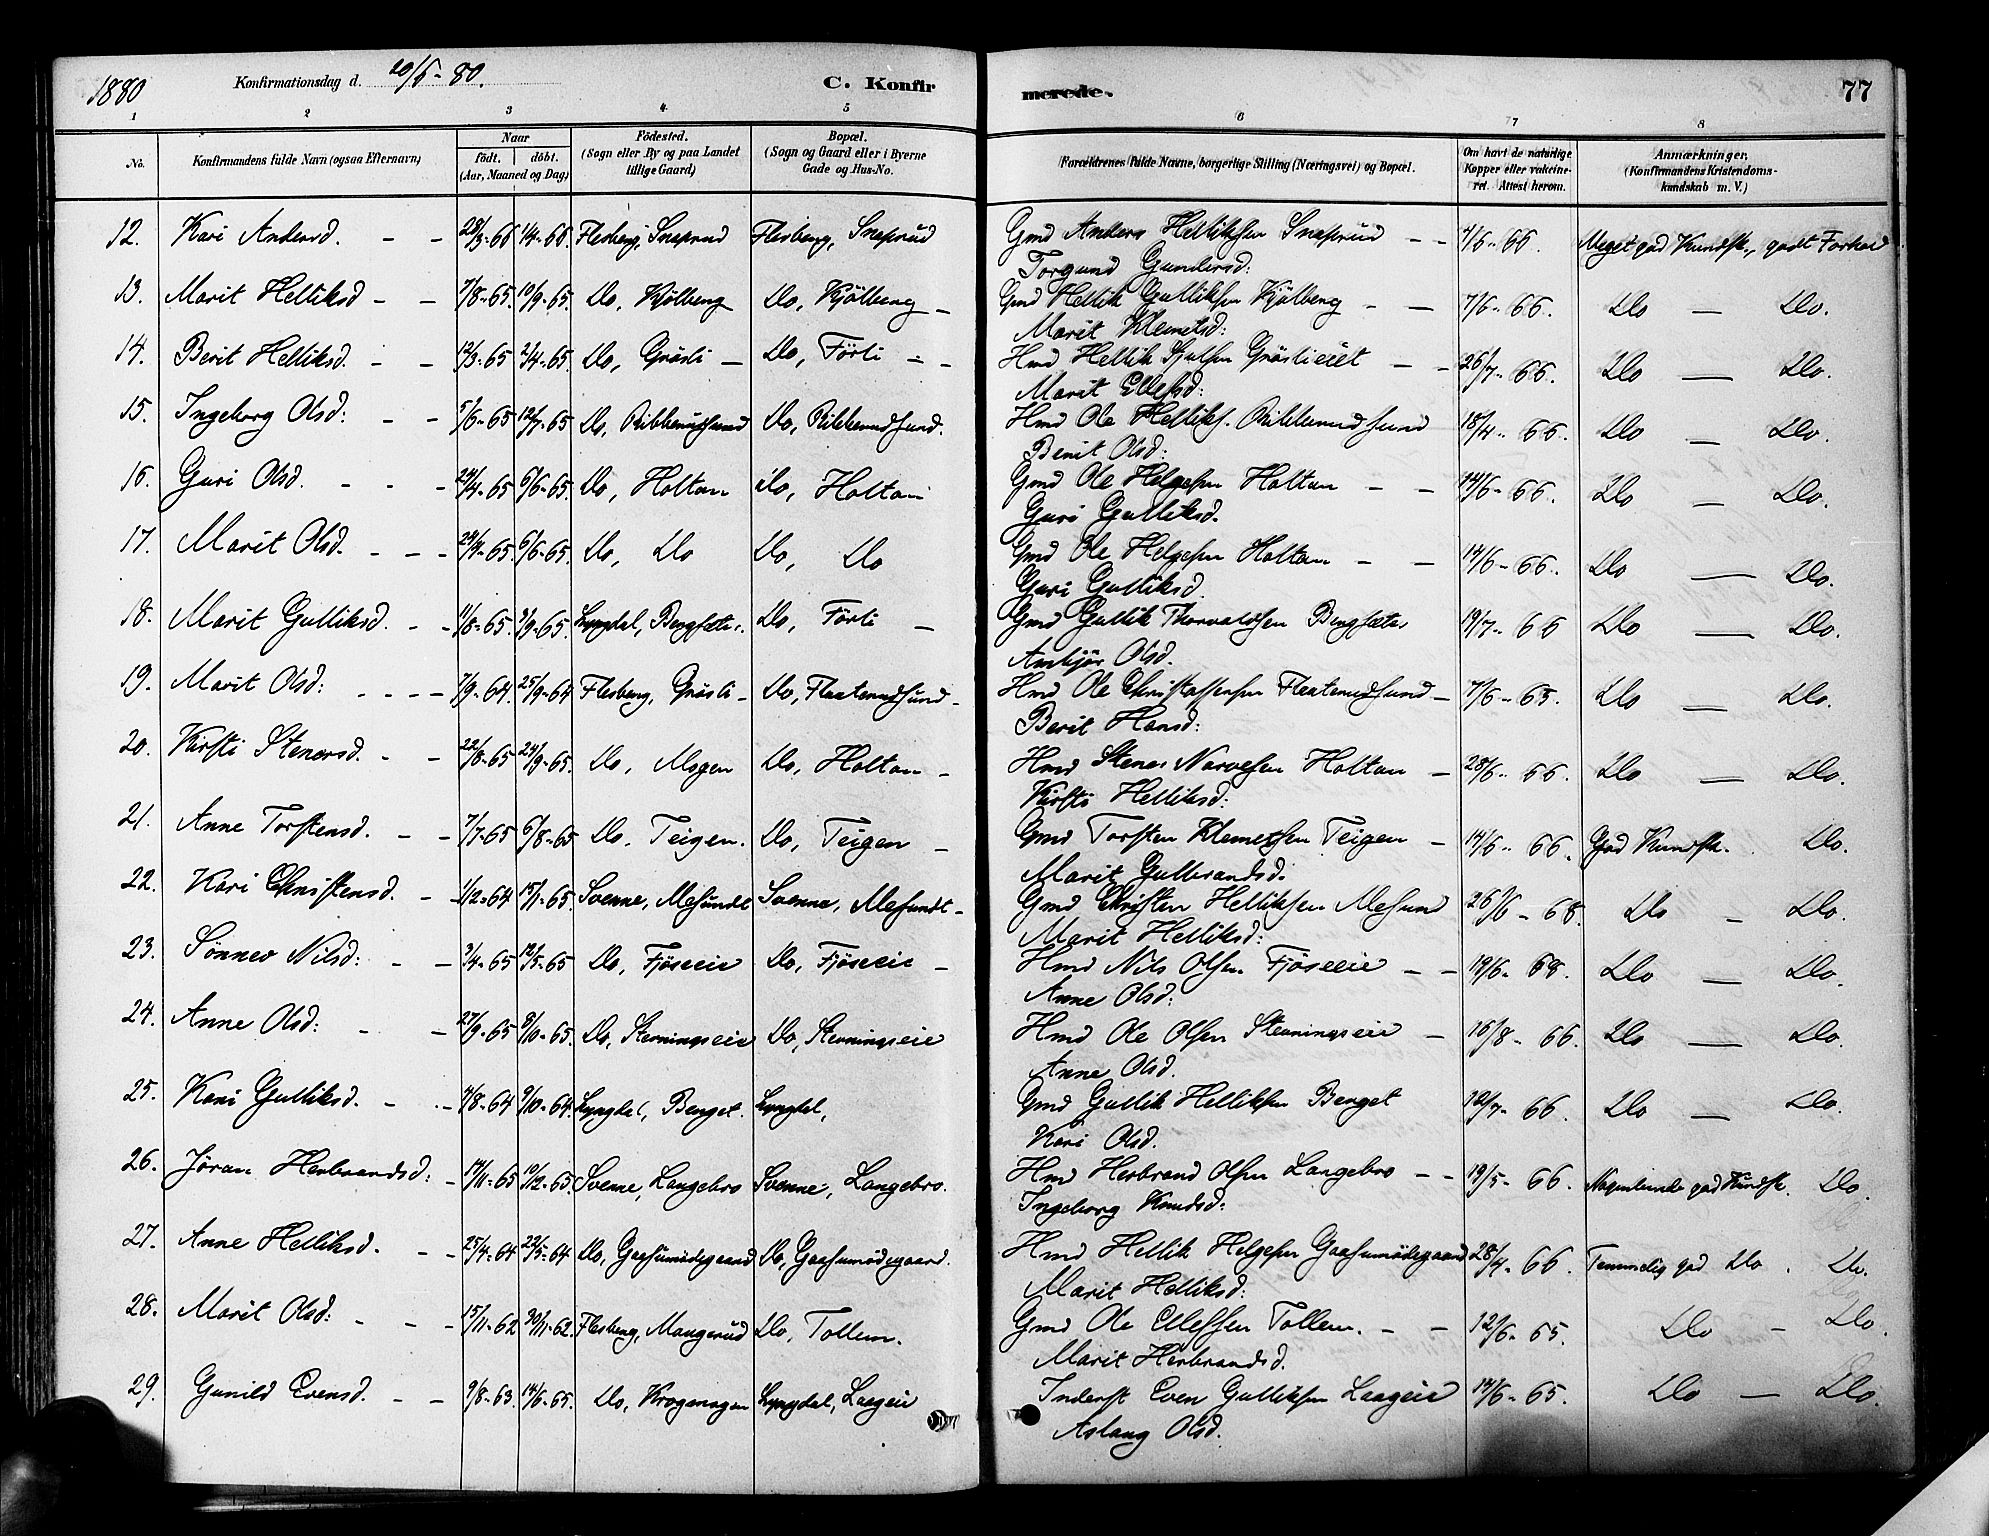 1880 Konfirmationsdag d. 20/6-80. C. Konfirmerede. 77
1 2 3 4 5 6 7 8
No. Konfirmandens fulde Navn (ogsaa Efternavn) Naar født. døbt. (Aar, Maaned og Dag) Födested. (Sogn eller By og paa Landet tillige Gaard) Bopæl. (Sogn og Gaard eller i Byerne Gade og Hus-No. Forældrenes fulde Navne, borgerlige Stilling (Næringsvei) og Bopæl. Om havt de naturlige Kopper eller vakcineret. Attest herom. Anmærkninger. (Konfirmandens Kristendomskundskab m. V.)
12. Kari Andersd. - - 28/3-66 1/4-66 Flesberg, Snaprud Flesberg, Snaprud Gmd Anders Helliksen Snaprud - - 4/6-66. Meget god Kundsk., godt Forhold
Torgund Gundersd:
13. Marit Helliksd - - 7/8-65. 10/9-65. Do, Kjölberg Do, Kjölberg - Gmd Hellik Gulliksen Kjölberg - - 7/6-66. Do - Do.
Marit Klemetsd:
14. Berit Helliksd. - - 12/3-65 2/4-65. Do, Gråsli - Do, Förli - - Hmd Hellik Gråslieiet - - 26/7-66. Do - Do.
Marit Ellefsd:
15. Ingeborg Olsd: - - 5/6-65 12/7-65 Do, Ribberudsund Do, Ribberudsund. Hmd Ole Helliks. Ribberudsund 18/4-66. Do - Do.
Berit Olsd:
16. Guri Olsd. - - - 24/4-65 6/6-65. Do, Holtan Do, Holtan Gmd Ole Helgesen Holtan - - 14/6-66. Do - Do.
Guri Gulliksd.
17. Marit Olsd. - - - 24/4-65 6/6-65. Do, Do Do, Do Gmd Ole Helgesen Holtan - - 14/6-66. Do - Do.
Guri Gulliksd.
18. Marit Gulliksd. - - 11/8-65. 3/9-65. Lyngdal, Bergsæter. Do, Förli - Gmd Gullik Thorvaldsen Bergsæter 19/7-66 Do - Do.
Ambjør Olsd.
19. Marit Olsd: - - - - 7/9-64. 25/9-64 Flesberg, Gråsli - Do, Flaterudsund - Hmd Ole Christoffersen Flaterudsund - 7/6-65. Do - Do.
Berit Hansd:
20. Kirsti Stenersd. - - 22/8-65 24/9-65. Do, Mogen Do, Holtan - Hmd Stener Narvesen Holtan - 28/6-66. Do - Do.
Kirsti Helliksd:
21. Anne Torstensd. - - 7/7-65 6/8-65 Do. Teigen. Do, Teigen - Gmd Torsten Klemetsen Teigen - 14/6-66. God Kundsk. Do.
Marit Gulbrandsd.
22. Kari Christensd. - 1/12-64 15/1-65. Svenne, Mesundt Svenne, Mesundt - Gmd Christen Helliksen Mesund 26/6-68. Do - Do.
Marit Helliksd:
23. Sønnev Nilsd: - - 3/4-65 12/5-65 Do, Fjöseie Do, Fjöseie - Hmd Nils Olsen Fjöseeie - - 19/6-68. Do - Do.
Anne Olsd:
24. Anne Olsd: - - 27/9-65 8/10-65. Do, Stevningseie Do, Stevningseie Hmd Ole Olsen Stevningseie - 16/8-66. Do - Do.
Anne Olsd.
25. Kari Gulliksd. - - 4/8-64 9/10-64. Lyngdal, Berget. Lyngdal, Gmd Gullik Helliksen Berget 12/7-66. Do - Do.
Kari Olsd.
26. Jøran Herbrandsd: - 14/11-65 10/12-65. Svenne, Langebro Svenne, Langebro. Hmd Herbrand Olsen Langebro - - 19/5-66. Nogenlunde god Kundsk. Do.
Ingeborg Knudsd:
27. Anne Helliksd. - - 25/4-64 22/5-64 Do, Do, Hmd Hellik Helgesen 28/4-66. Temmelig god Do. Do.
Marit Helliksd:
28. Marit Olsd: - - - 15/11-62 30/11-62. Flesberg, Mangerud Do, Tollem. Gmd Ole Ellefsen Tollem. - - 12/6-65. Do - Do.
Marit Herbrandsd.
29. Gunild Evensd. - - 9/8-63. 14/6-65. Do, Kragemogen Lyngdal, Laageie Inderst Even Gulliksen Laageie 14/6-65. Do - Do.
Aslaug Olsd.